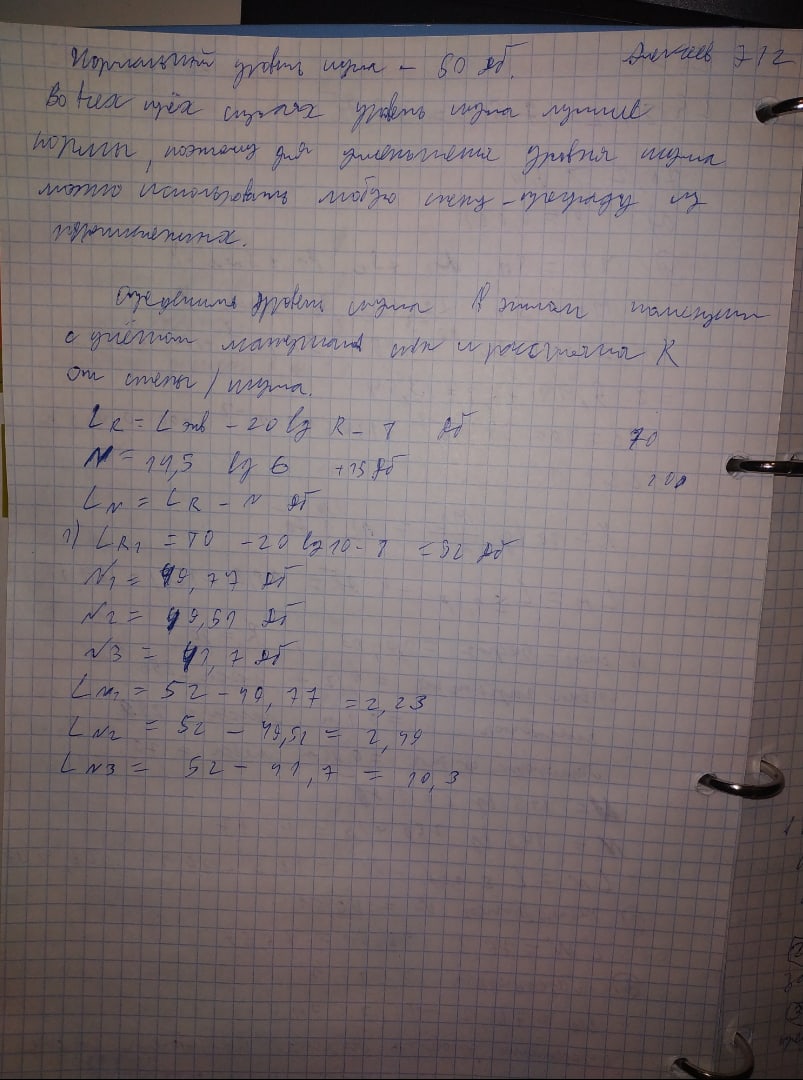 Нормальный уровень шума - 60 дб. Алексеев 712
Во всех трёх случаях уровень шума лучше
нормы, поэтому для уменьшения уровня шума
можно использовать любую стену-преграду из
Определить уровень шума в жилом помещении
с учётом материала стен и расстояния R
от стены/шума.
LR = Lэкв - 20 lg R - 8 дб 70
N = 14,5 lg G +15 дб 200
LN = LR - N дб
1) LR1 = 80 - 20 lg 10 - 8 = 52 дб
N1 = 49,77 дб
N2 = 49,51 дб
N3 = 41,7 дб
LN1 = 52 - 49,77 = 2,23
LN2 = 52 - 49,51 = 2,49
LN3 = 52 - 41,7 = 10,3